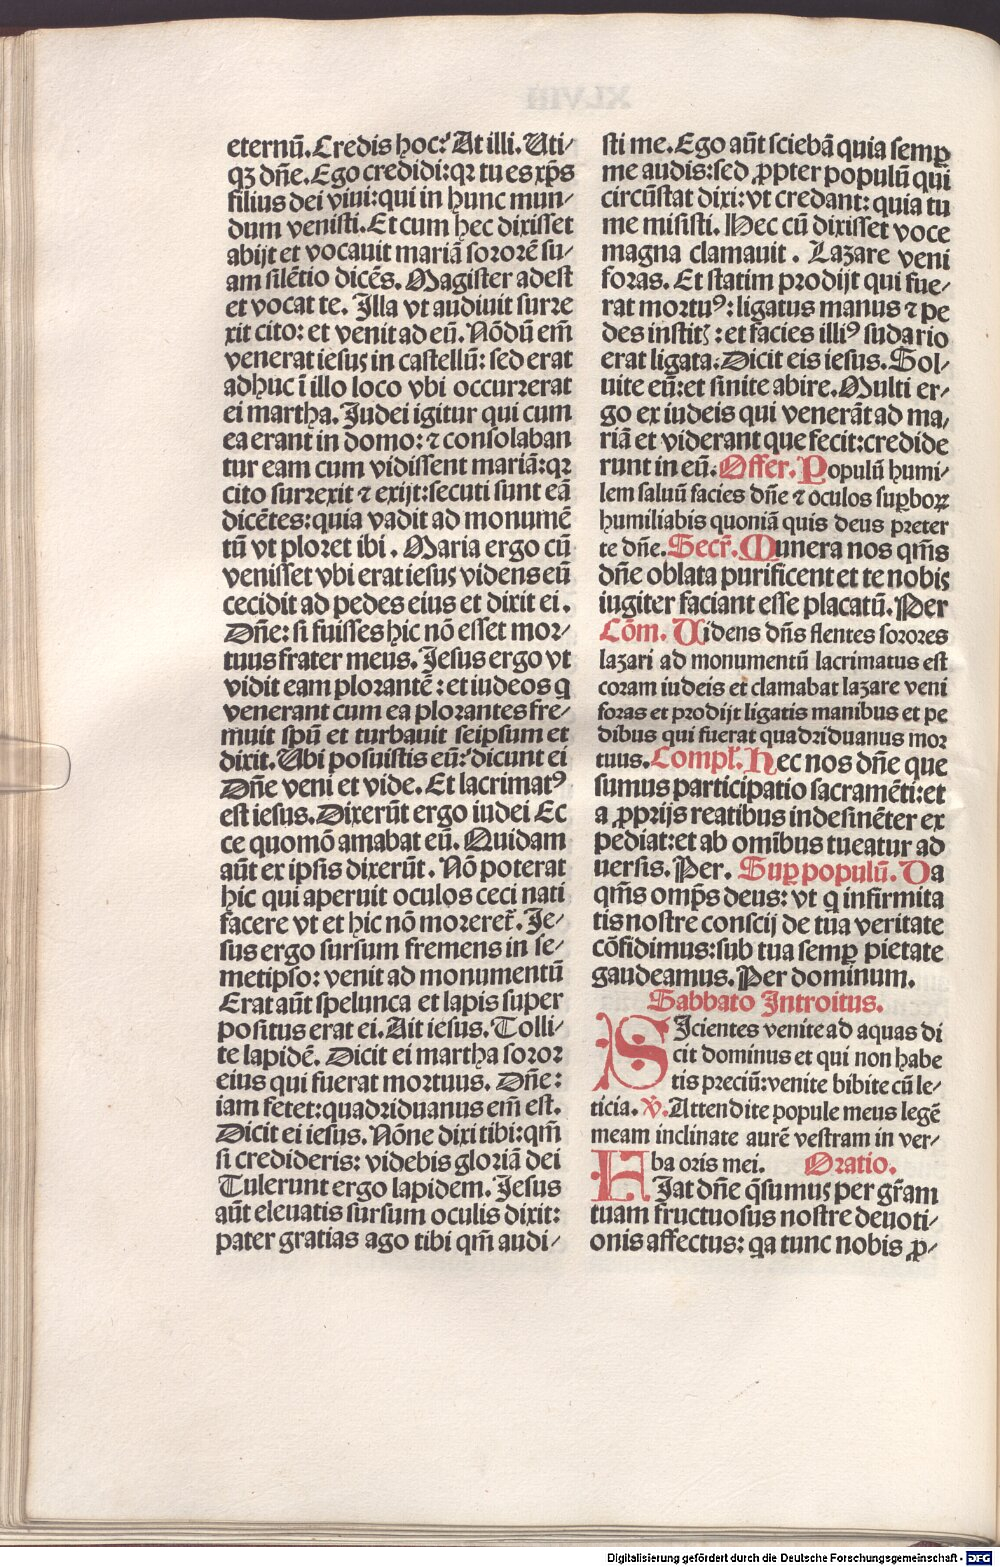 eternũ. Credis hoc? At illi. Uti⸗
qꝫ dñe. Ego credidi: qꝛ tu es xp̃s
filius dei viui: qui in hunc mun⸗
dum venisti. Et cum hec dixisset
abijt et vocauit mariã sororẽ su⸗
am silẽtio dicẽs. Magister adest
et vocat te. Illa vt audiuit surre
xit cito: et venit ad eũ. Nõdũ em̃
venerat iesus in castellũ: sed erat
adhuc ĩ illo loco vbi occurrerat
ei martha. Judei igitur qui cum
ea erant in domo: ⁊ consolaban
tur eam cum vidissent mariã: qꝛ
cito surrexit ⁊ exijt: secuti sunt eã
dicẽtes: quia vadit ad monumẽ
tũ vt ploret ibi. Maria ergo cũ
venisset vbi erat iesus videns eũ
cecidit ad pedes eius et dixit ei.
Dñe: si fuisses hic nõ esset mor⸗
tuus frater meus. Jesus ergo vt
vidit eam plorantẽ: et iudeos q
venerant cum ea plorantes fre⸗
muit spũ et turbauit seipsum et
dixit. Ubi posuistis eũ? dicunt ei
Dñe veni et vide. Et lacrimatꝰ
est iesus. Dixerũt ergo iudei Ec
ce quomõ amabat eũ. Quidam
aũt ex ipsis dixerũt. Nõ poterat
hic qui aperuit oculos ceci nati
facere vt et hic nõ morereť. Je⸗
sus ergo sursum fremens in se⸗
metipso: venit ad monumentũ
Erat aũt spelunca et lapis super
positus erat ei. Ait iesus. Tolli⸗
te lapidẽ. Dicit ei martha soror
eius qui fuerat mortuus. Dñe:
iam fetet: quadriduanus em̃ est.
Dicit ei iesus. Nõne dixi tibi: qm̃
si credideris: videbis gloriã dei
Tulerunt ergo lapidem. Jesus
aũt eleuatis sursum oculis dixit:
pater gratias ago tibi qm̃ audi⸗
sti me. Ego aũt sciebã quia semꝑ
me audis: sed ꝓpter populũ qui
circũstat dixi: vt credant: quia tu
me misisti. Hec cũ dixisset voce
magna clamauit. Lazare veni
foras. Et statim prodijt qui fue⸗
rat mortuꝰ: ligatus manus ⁊ pe
des institꝭ: et facies illiꝰ sudario
erat ligata. Dicit eis iesus. Sol⸗
uite eũ: et sinite abire. Multi er⸗
go ex iudeis qui venerãt ad ma⸗
riã et viderant que fecit: credide
runt in eũ. Offer. Populũ humi⸗
lem saluũ facies dñe ⁊ oculos suꝑboꝝ
humiliabis quoniã quis deus preter
te dñe. Secř. Munera nos qm̃s
dñe oblata purificent et te nobis
iugiter faciant esse placatũ. Per
Cõm. Uidens dñs flentes sorores
lazari ad monumentũ lacrimatus est
coram iudeis et clamabat lazare veni
foras et prodijt ligatis manibus et pe
dibus qui fuerat quadriduanus mor
tuus. Compł. Hec nos dñe que
sumus participatio sacramẽti: et
a ꝓprijs reatibus indesinẽter ex
pediat: et ab omĩbus tueatur ad
uersis. Per. Suꝑ populũ. Da
qm̃s omp̃s deus: vt q infirmita
tis nostre conscij de tua veritate
cõfidimus: sub tua semꝑ pietate
gaudeamus. Per dominum.
Sabbato Introitus.
SIcientes venite ad aquas di
cit dominus et qui non habe
tis preciũ: venite bibite cũ le⸗
ticia. ℣. Attendite popule meus legẽ
meam inclinate aurẽ vestram in ver⸗
ba oris mei. Oratio.
FIat dñe q̃sumus per gr̃am
tuam fructuosus nostre deuoti⸗
onis affectus: qa tunc nobis ꝓ⸗
Digitalisierung gefördert durch die Deutsche Forschungsgemeinschaft - DFG